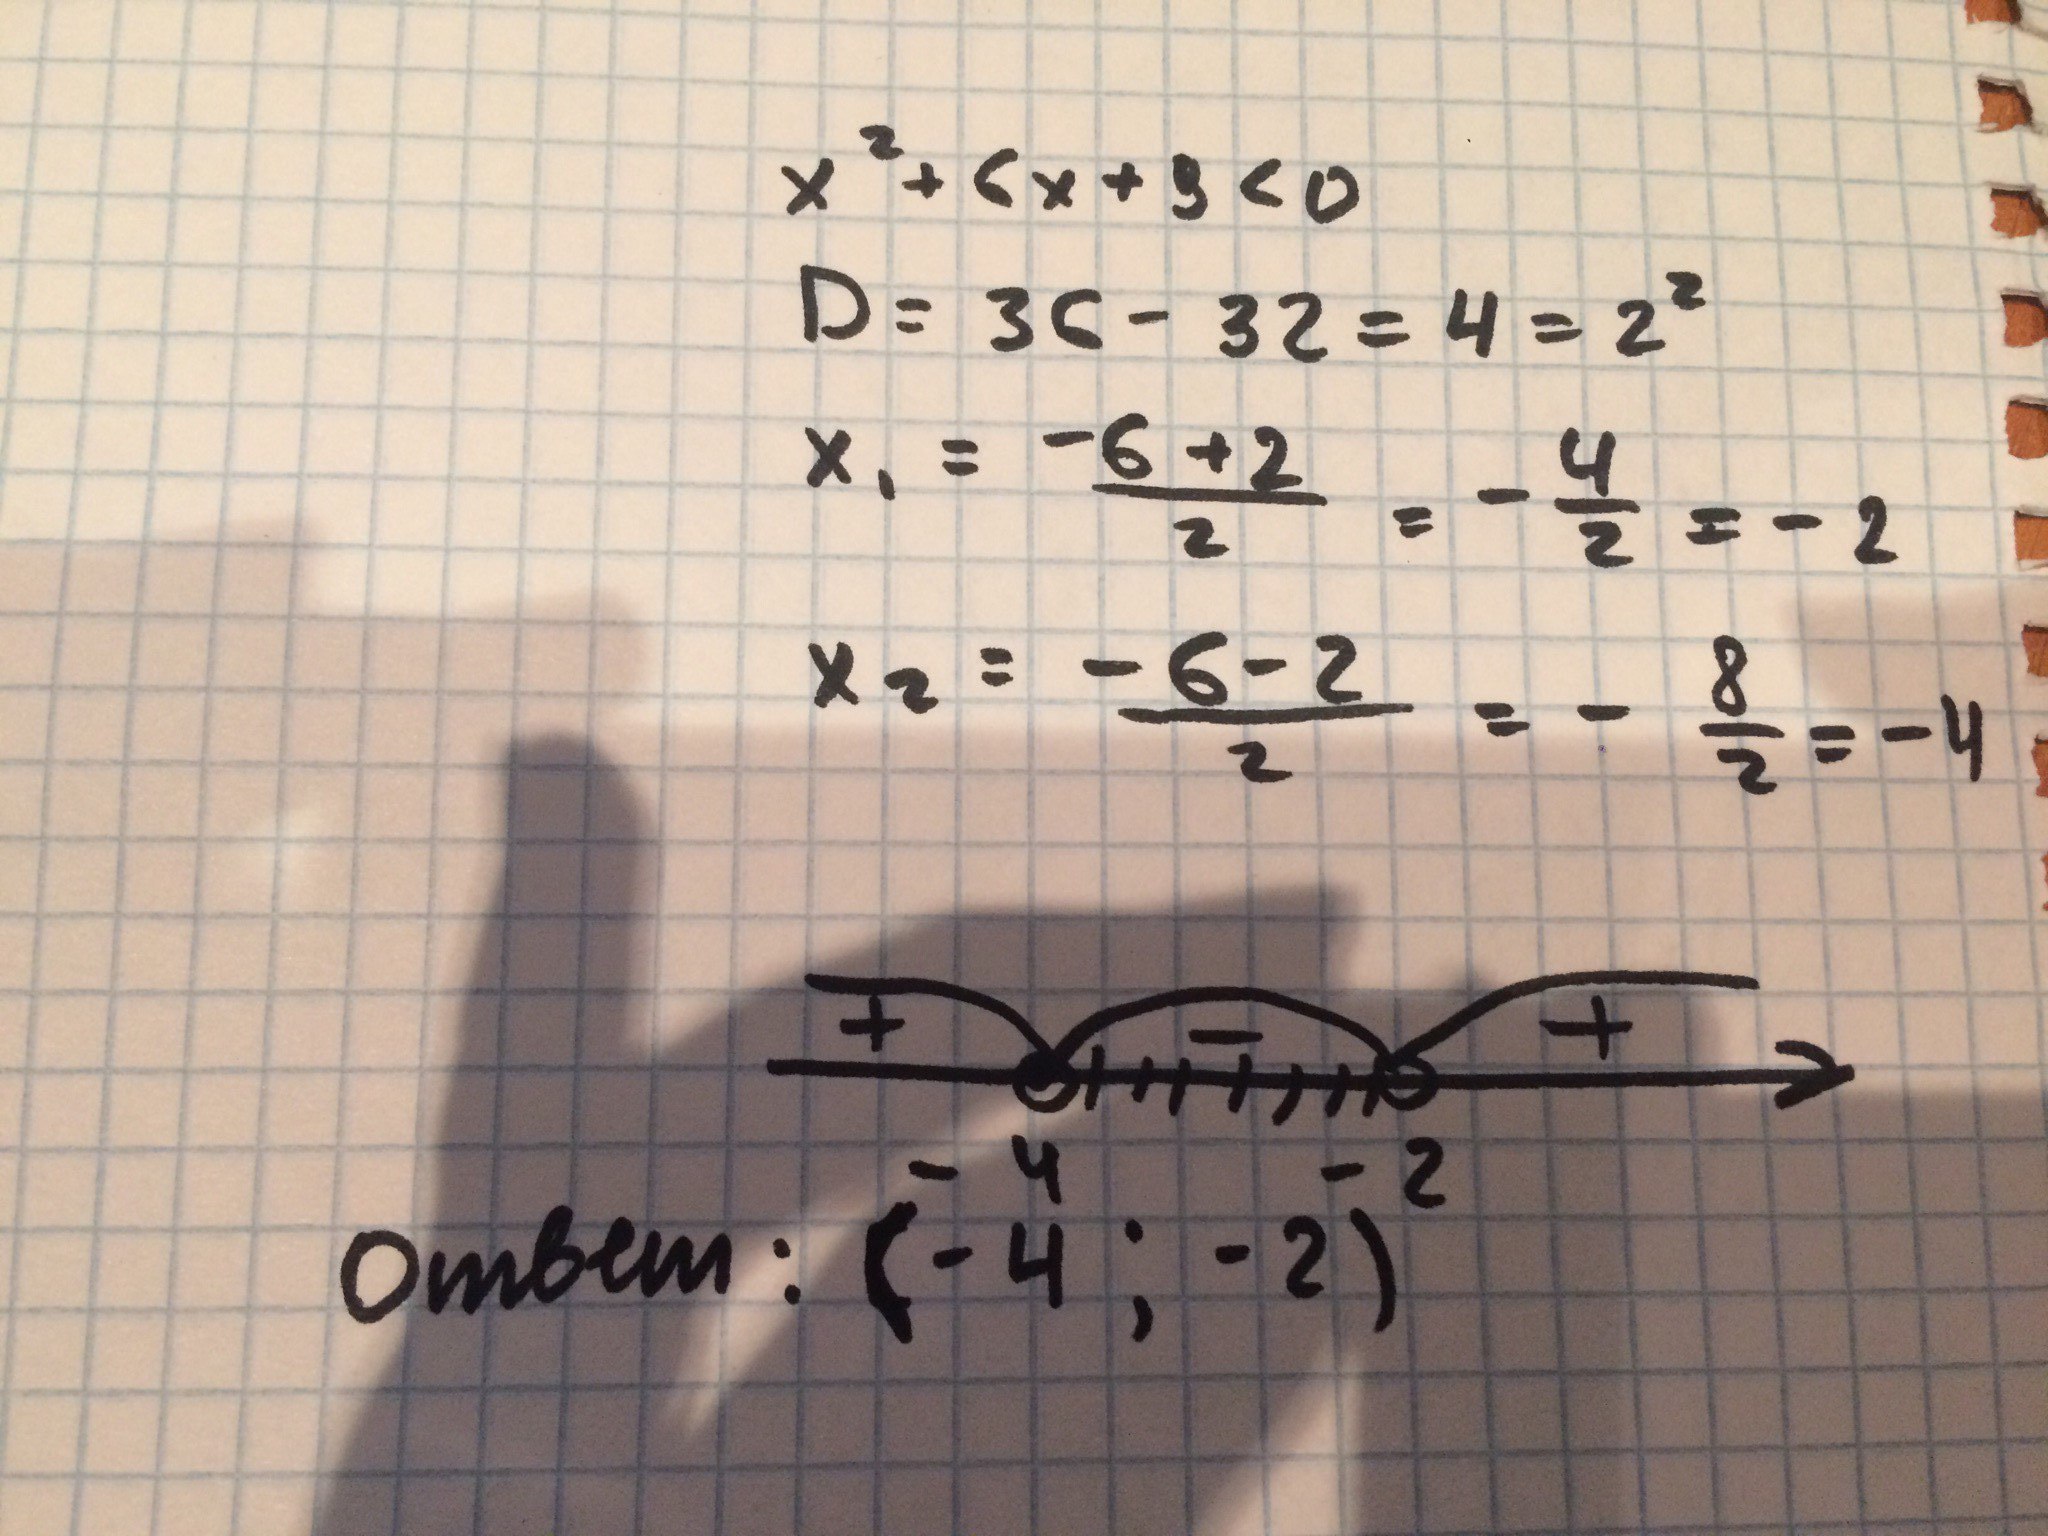 x² + 6x + 8 < 0
D = 36 - 32 = 4 = 2²
x₁ = (-6 + 2)/2 = - 4/2 = - 2
x₂ = (-6 - 2)/2 = - 8/2 = - 4
+ - +
- 4 - 2
Ответ: (- 4 ; - 2)